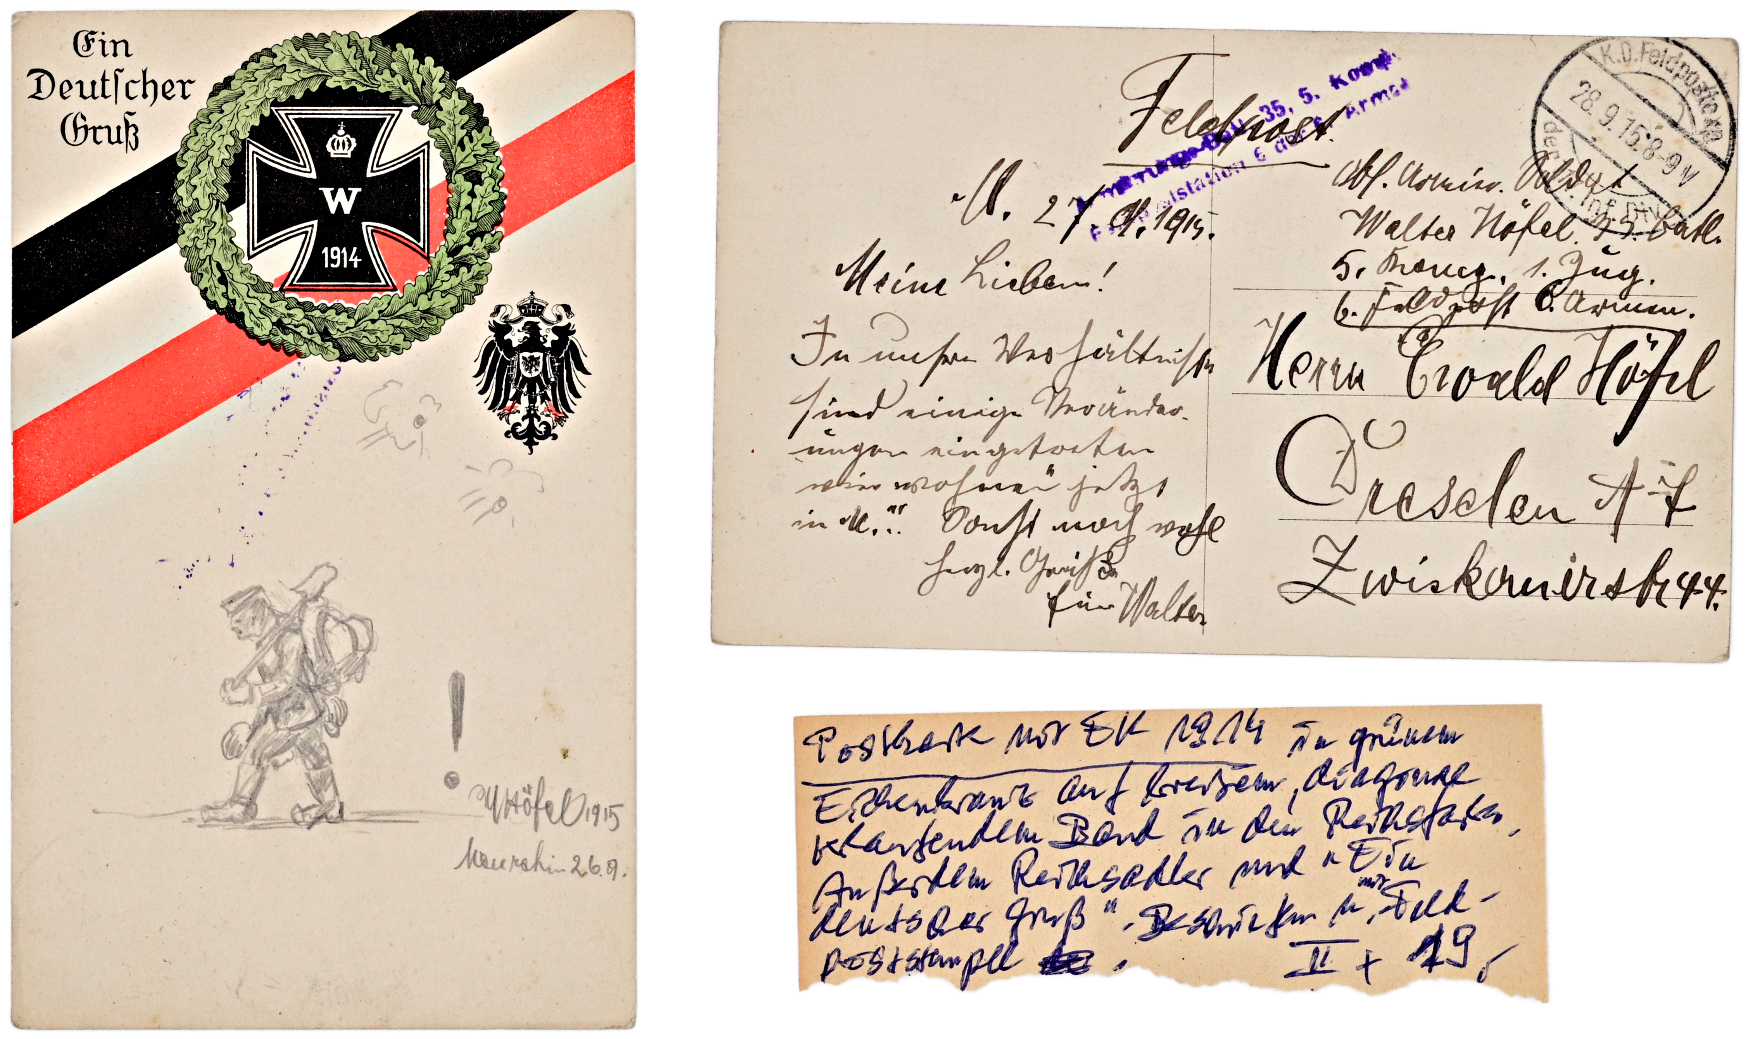 Ein
Deutscher
Gruß
W
1914
WHöfel 1915
26.9.
Feldpost.
Armierungs-Bat. 35, 5. Komp.
Feldpoststation 6 der 6. Armee
K.D. Feldpostexp.
28.9.15. 8-9 V
der Inf. Div.
M. 27.9.1915.
Meine Lieben!
In unsern Verhältnissen
sind einige Veränder-
ungen eingetreten
wir wohnen jetzt
in "M." Sonst noch wohl
herzl. Grüße
Euer Walter
Abs. Armier. Soldat
Walter Höfel. 35. Batl.
5. Komp., 1. Zug.
6. Feldpost 6. Armee.
Herrn Ewald Höfel
Dresden A-7
Zwickauerstr 44.
Postkarte mit EK 1914 in grünem
Eichenkranz auf breitem, diagonal
verlaufendem Band in den Reichsfarben,
Außerdem Reichsadler und "Ein
deutscher Gruß". Beschrieben u. mit Feld-
poststempel.
II + 19,